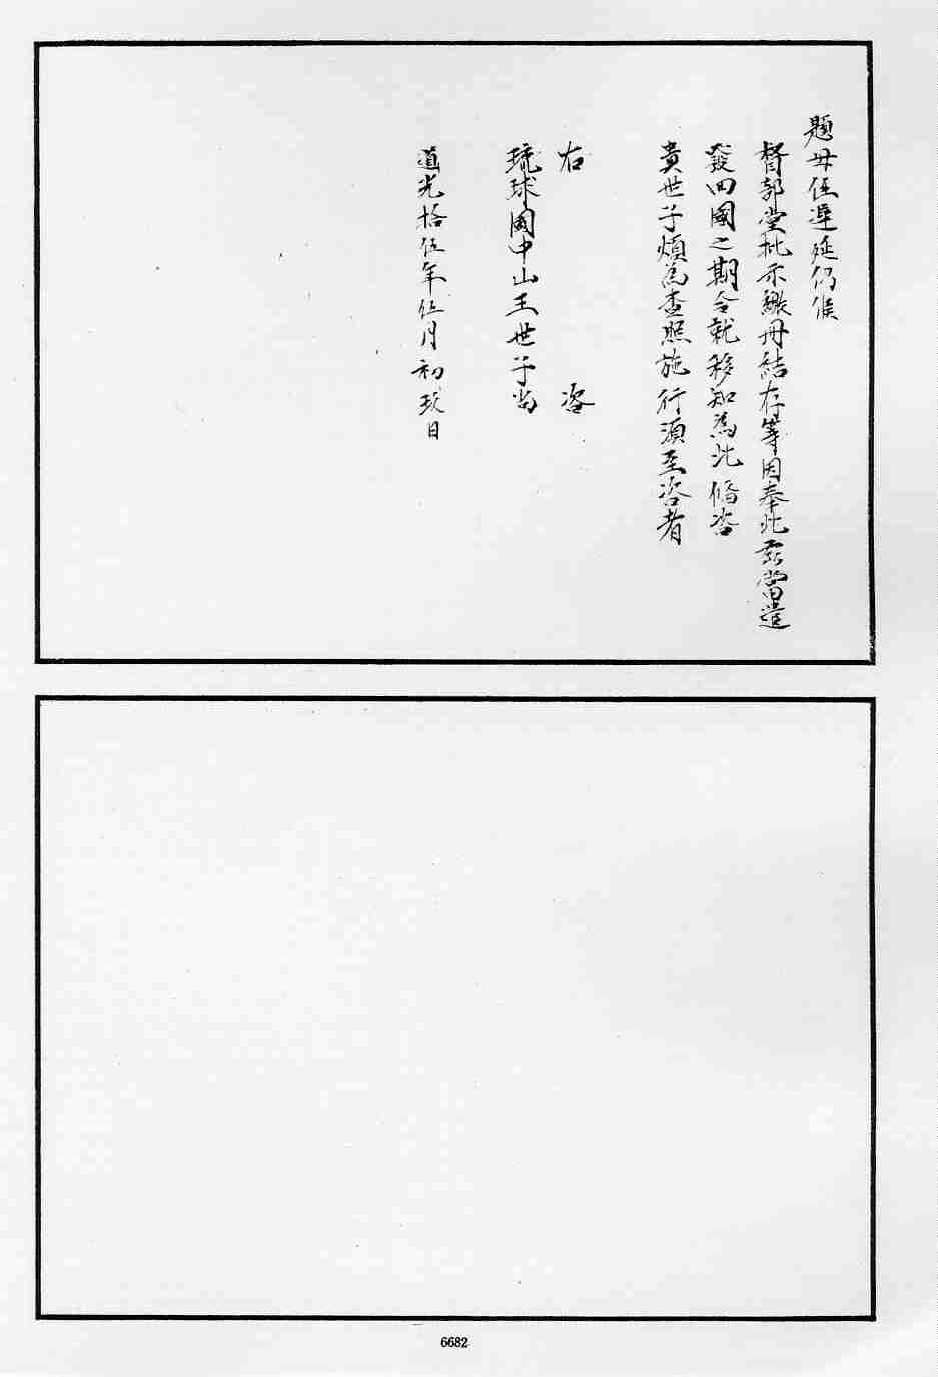 題毋任遲延仍候
督部堂批示繳冊結存等因奉此茲當遣
發回國之期合就移知為此備咨
貴世子煩為查照施行須至咨者
右 咨
琉球國中山王世子尚
道光拾伍年伍月初玖日
6682